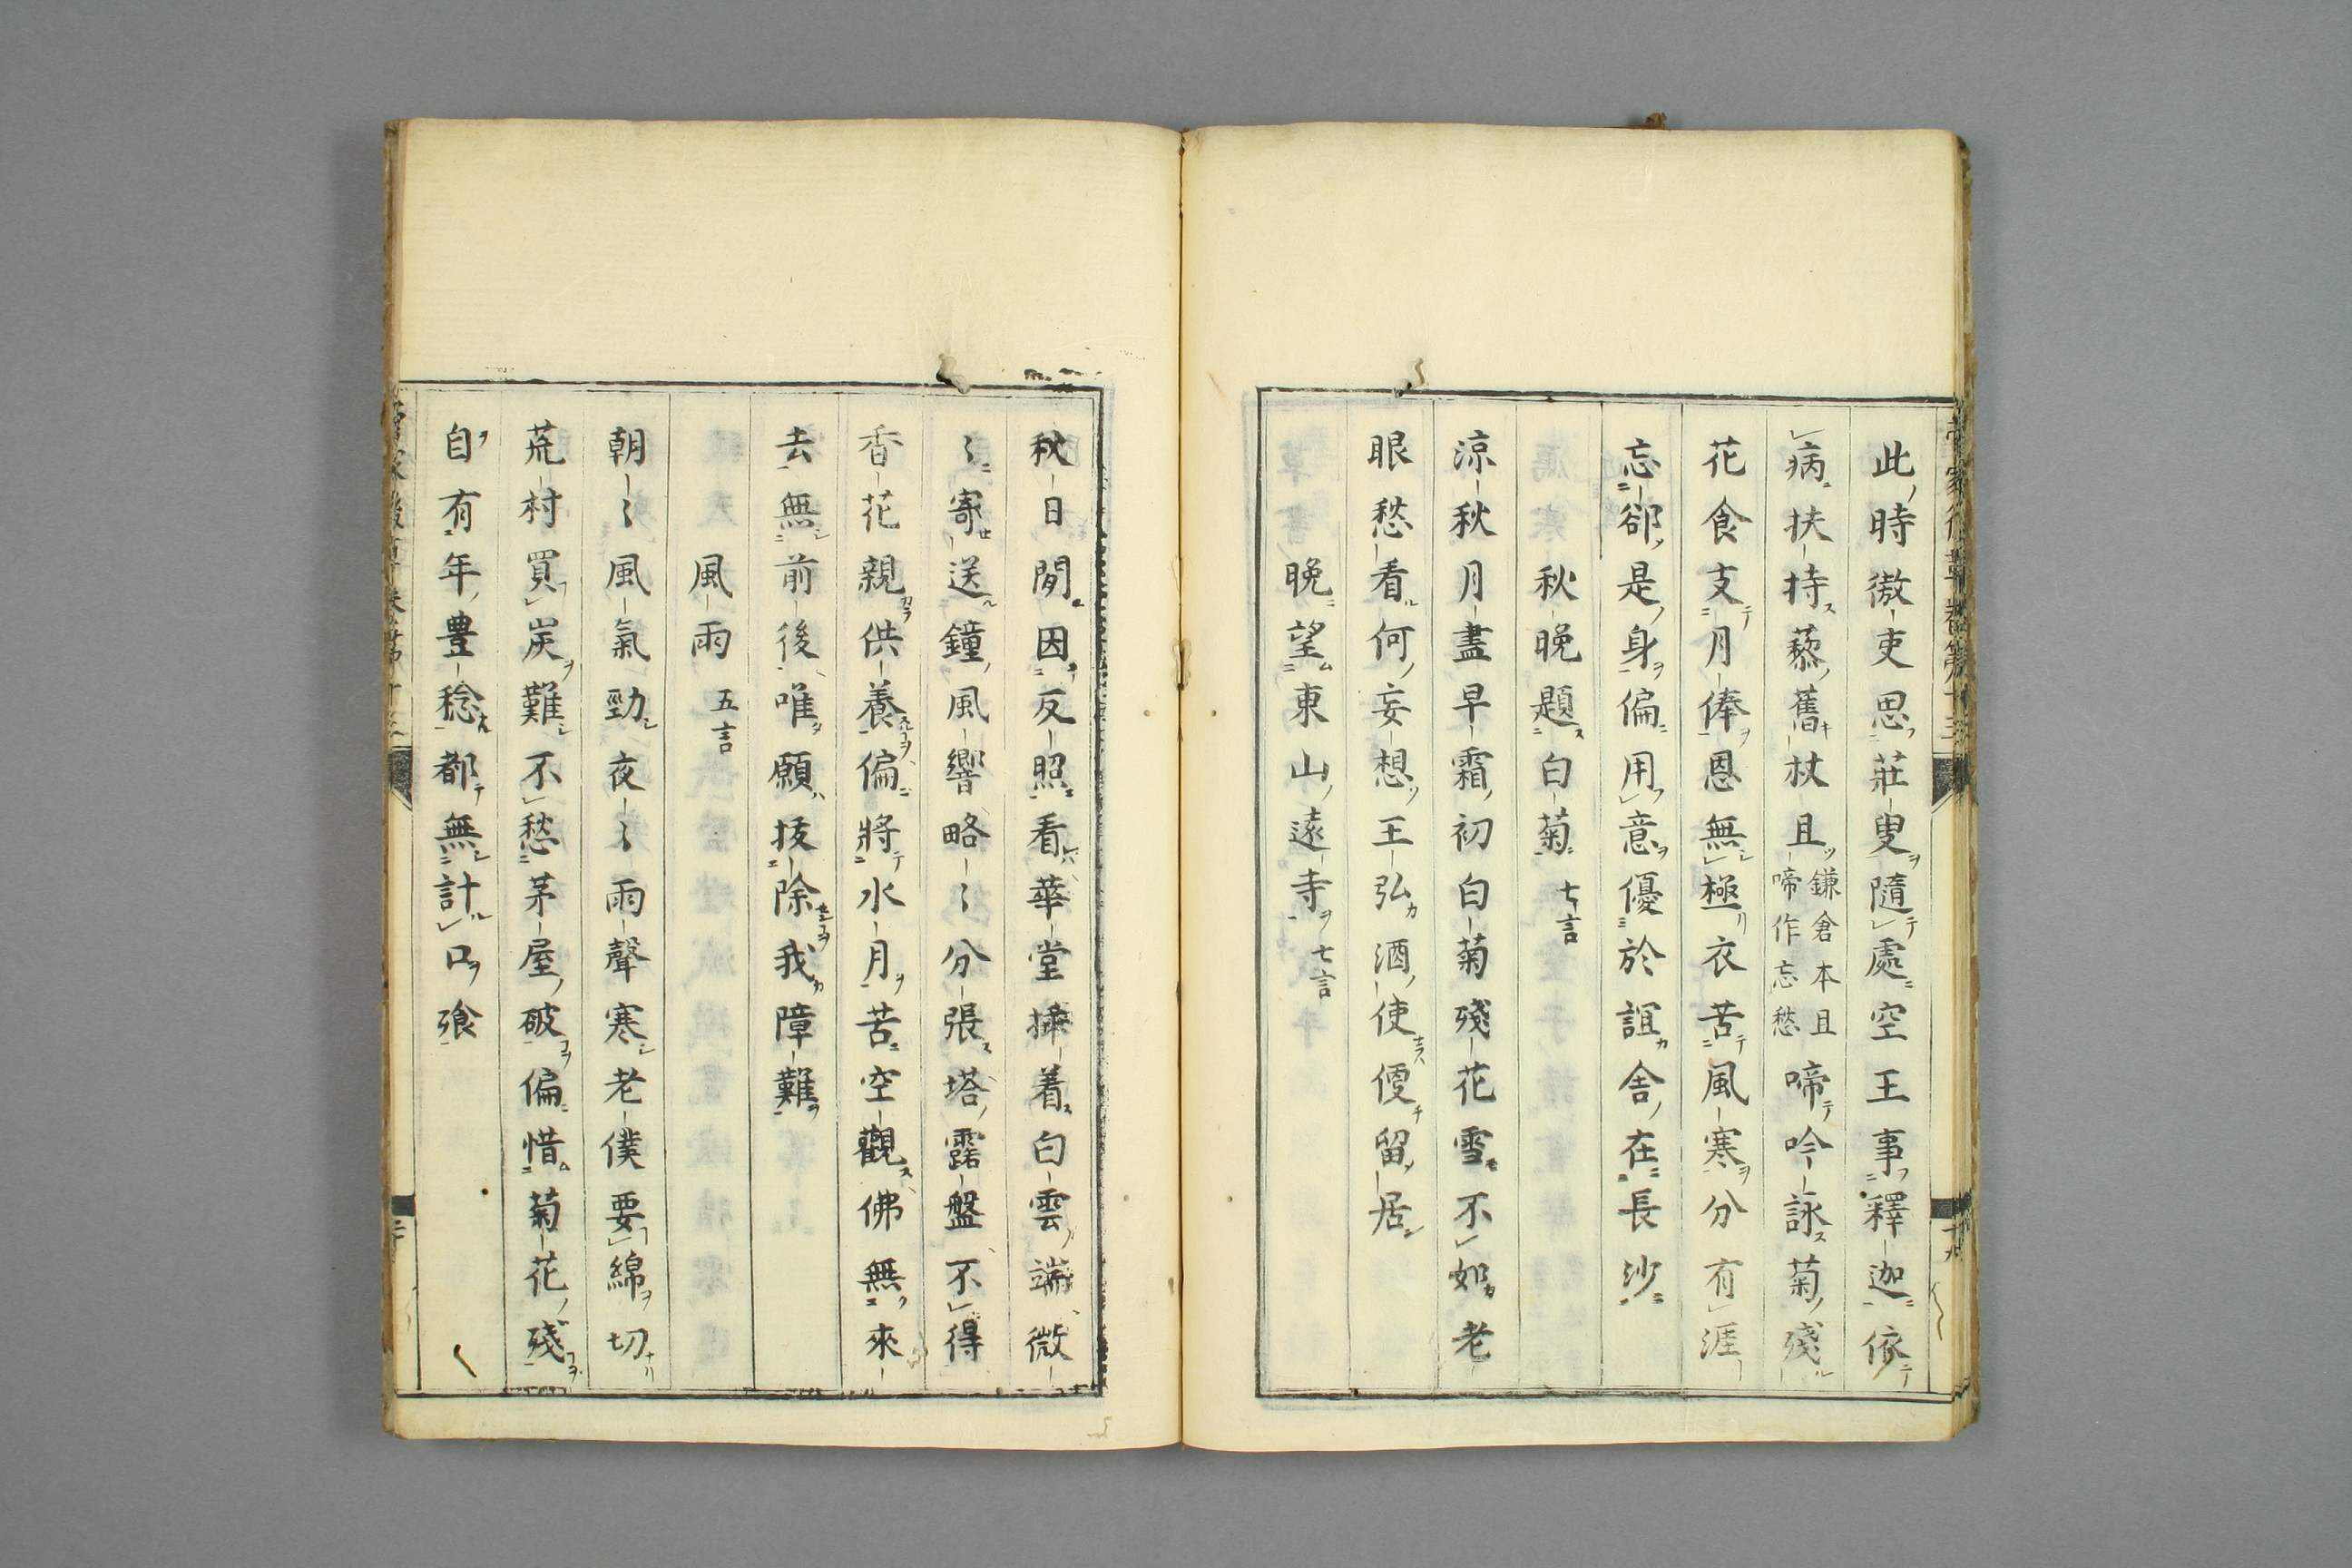 此時徼吏思莊叟隨處空王事釋迦依
病扶持藜舊杖且鎌倉本且啼作忘愁啼吟詠菊殘
花食支月俸恩無極衣苦風寒分有涯
忘卻是身偏用意優於誼舍在長沙
秋晚題白菊 七言
涼秋月盡早霜初白菊殘花雪不如老
眼愁看何妄想王弘酒使便留居
晚望東山遠寺 七言
秋日閑因反照看華堂插着白雲端微
〻寄送鐘風響略〻分張塔露盤不得
香花親供養偏將水月苦空觀佛無來
去無前後唯願抜除我障難
風雨 五言
朝〻風氣勁夜〻雨聲寒老僕要綿切
荒村買炭難不愁茅屋破偏惜菊花殘
自有年豊稔都無計口飡